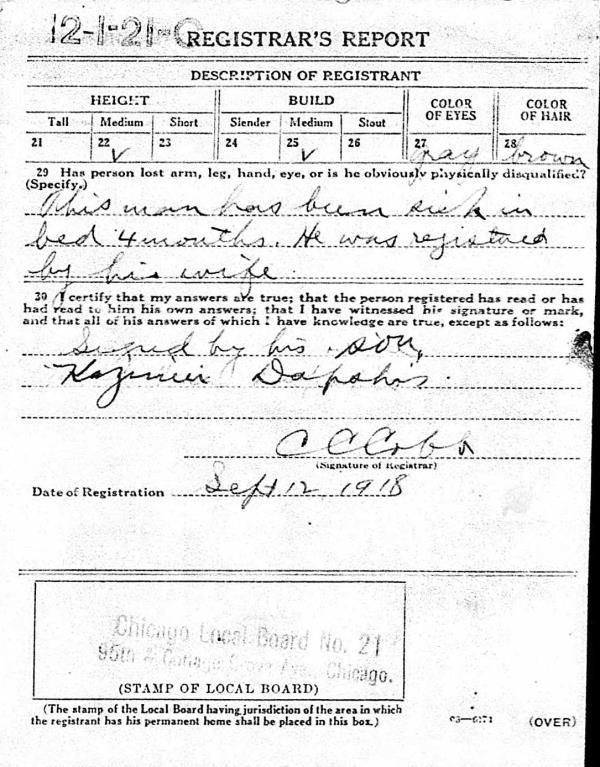 12-1-21-C REGISTRAR'S REPORT
DESCRIPTION OF REGISTRANT
HEIGHT BUILD COLOR OF EYES COLOR OF HAIR
Tall Medium Short Slender Medium Stout
21 22 ✓ 23 24 25 ✓ 26 27 gray 28 brown
29 Has person lost arm, leg, hand, eye, or is he obviously physically disqualified?
(Specify.)
This man has been sick in
bed 4 months. He was registered
by his wife.
30 I certify that my answers are true; that the person registered has read or has
had read to him his own answers; that I have witnessed his signature or mark,
and that all of his answers of which I have knowledge are true, except as follows:
Signed by his son,
Kazimier Dapshis.
C C Cobb
(Signature of Registrar)
Date of Registration Sept 12 1918
Chicago Local Board No. 21
95th & Cottage Grove Ave., Chicago.
(STAMP OF LOCAL BOARD)
(The stamp of the Local Board having jurisdiction of the area in which
the registrant has his permanent home shall be placed in this box.)
03—6171 (OVER)